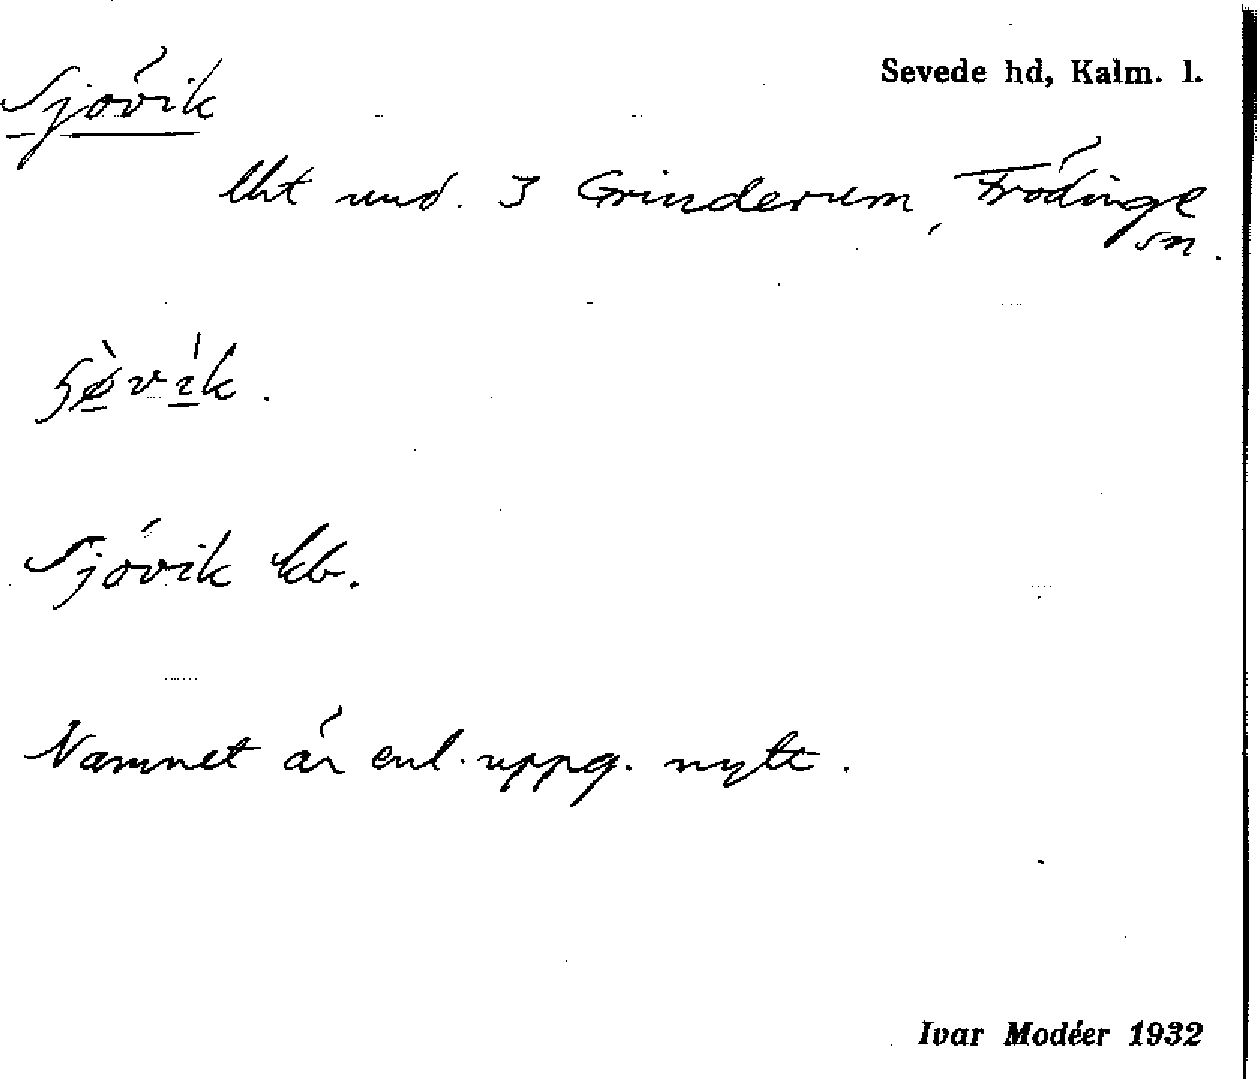 Sjövik
Sevede hd, Kalm. l.
lht und. 3 Grinderum, Frödinge
sn.
Sjövik kb.
Namnet är enl. uppg. nytt.
Ivar Modéer 1932